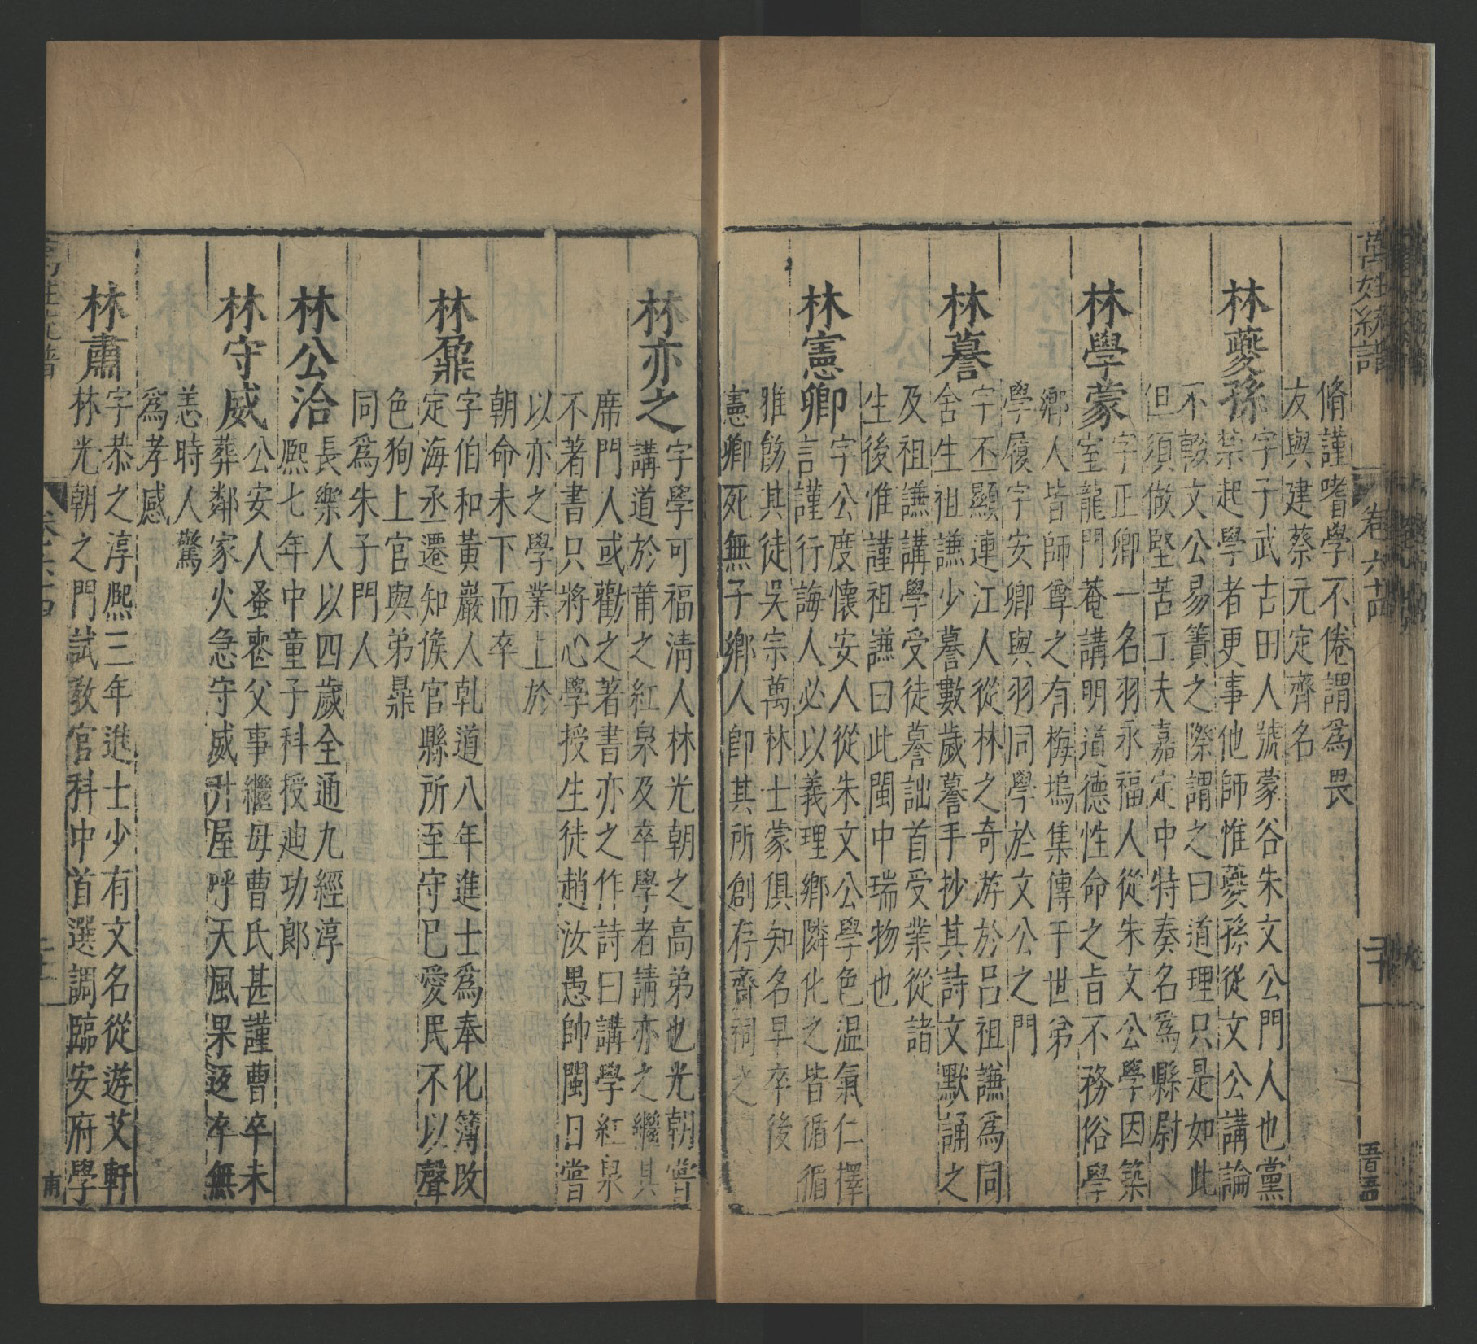 萬姓統譜
卷六十四
脩謹嗜學不倦謂爲畏
友與建蔡元定齊名
林夔孫
字子武古田人號蒙谷朱文公門人也黨
禁起學者更事他師惟夔孫從文公講論
不輟文公易簀之際謂之曰道理只是如此
但須做堅苦工夫嘉定中特奏名爲縣尉
林學蒙
字正卿一名羽永福人從朱文公學因築
室龍門菴講明道德性命之旨不務俗學
鄉人皆師尊之有梅塢集傳于世弟
學履字安卿與羽同學於文公之門
林謩
字丕顯連江人從林之奇游於呂祖謙爲同
舍生祖謙少謩數歲謩手抄其詩文默誦之
及祖謙講學受徒謩詘首受業從諸
生後惟謹祖謙曰此閩中瑞物也
林憲卿
字公度懷安人從朱文公學色温氣仁擇
言謹行誨人必以義理鄉隣化之皆循循
雅飭其徒吳宗萬林士蒙俱知名早卒後
憲卿死無子鄉人卽其所創存齋祠之
林亦之
字學可福清人林光朝之高弟也光朝嘗
講道於莆之紅泉及卒學者請亦之繼其
席門人或勸之著書亦之作詩曰講學紅泉
不著書只將心學授生徒趙汝愚帥閩日嘗
以亦之學業上於
朝命未下而卒
林鼐
字伯和黃巖人乾道八年進士爲奉化簿改
定海丞遷知侯官縣所至守已愛民不以聲
色狥上官與弟鼏
同爲朱子門人
林公洽
長樂人以四歲全通九經淳
熙七年中童子科授迪功郎
林守威
公安人蚤喪父事繼母曹氏甚謹曹卒未
葬鄰家火急守威升屋呼天風果返卒無
恙時人驚
爲孝感
林肅
字恭之淳熙三年進士少有文名從遊艾軒
林光朝之門試教官科中首選調臨安府學